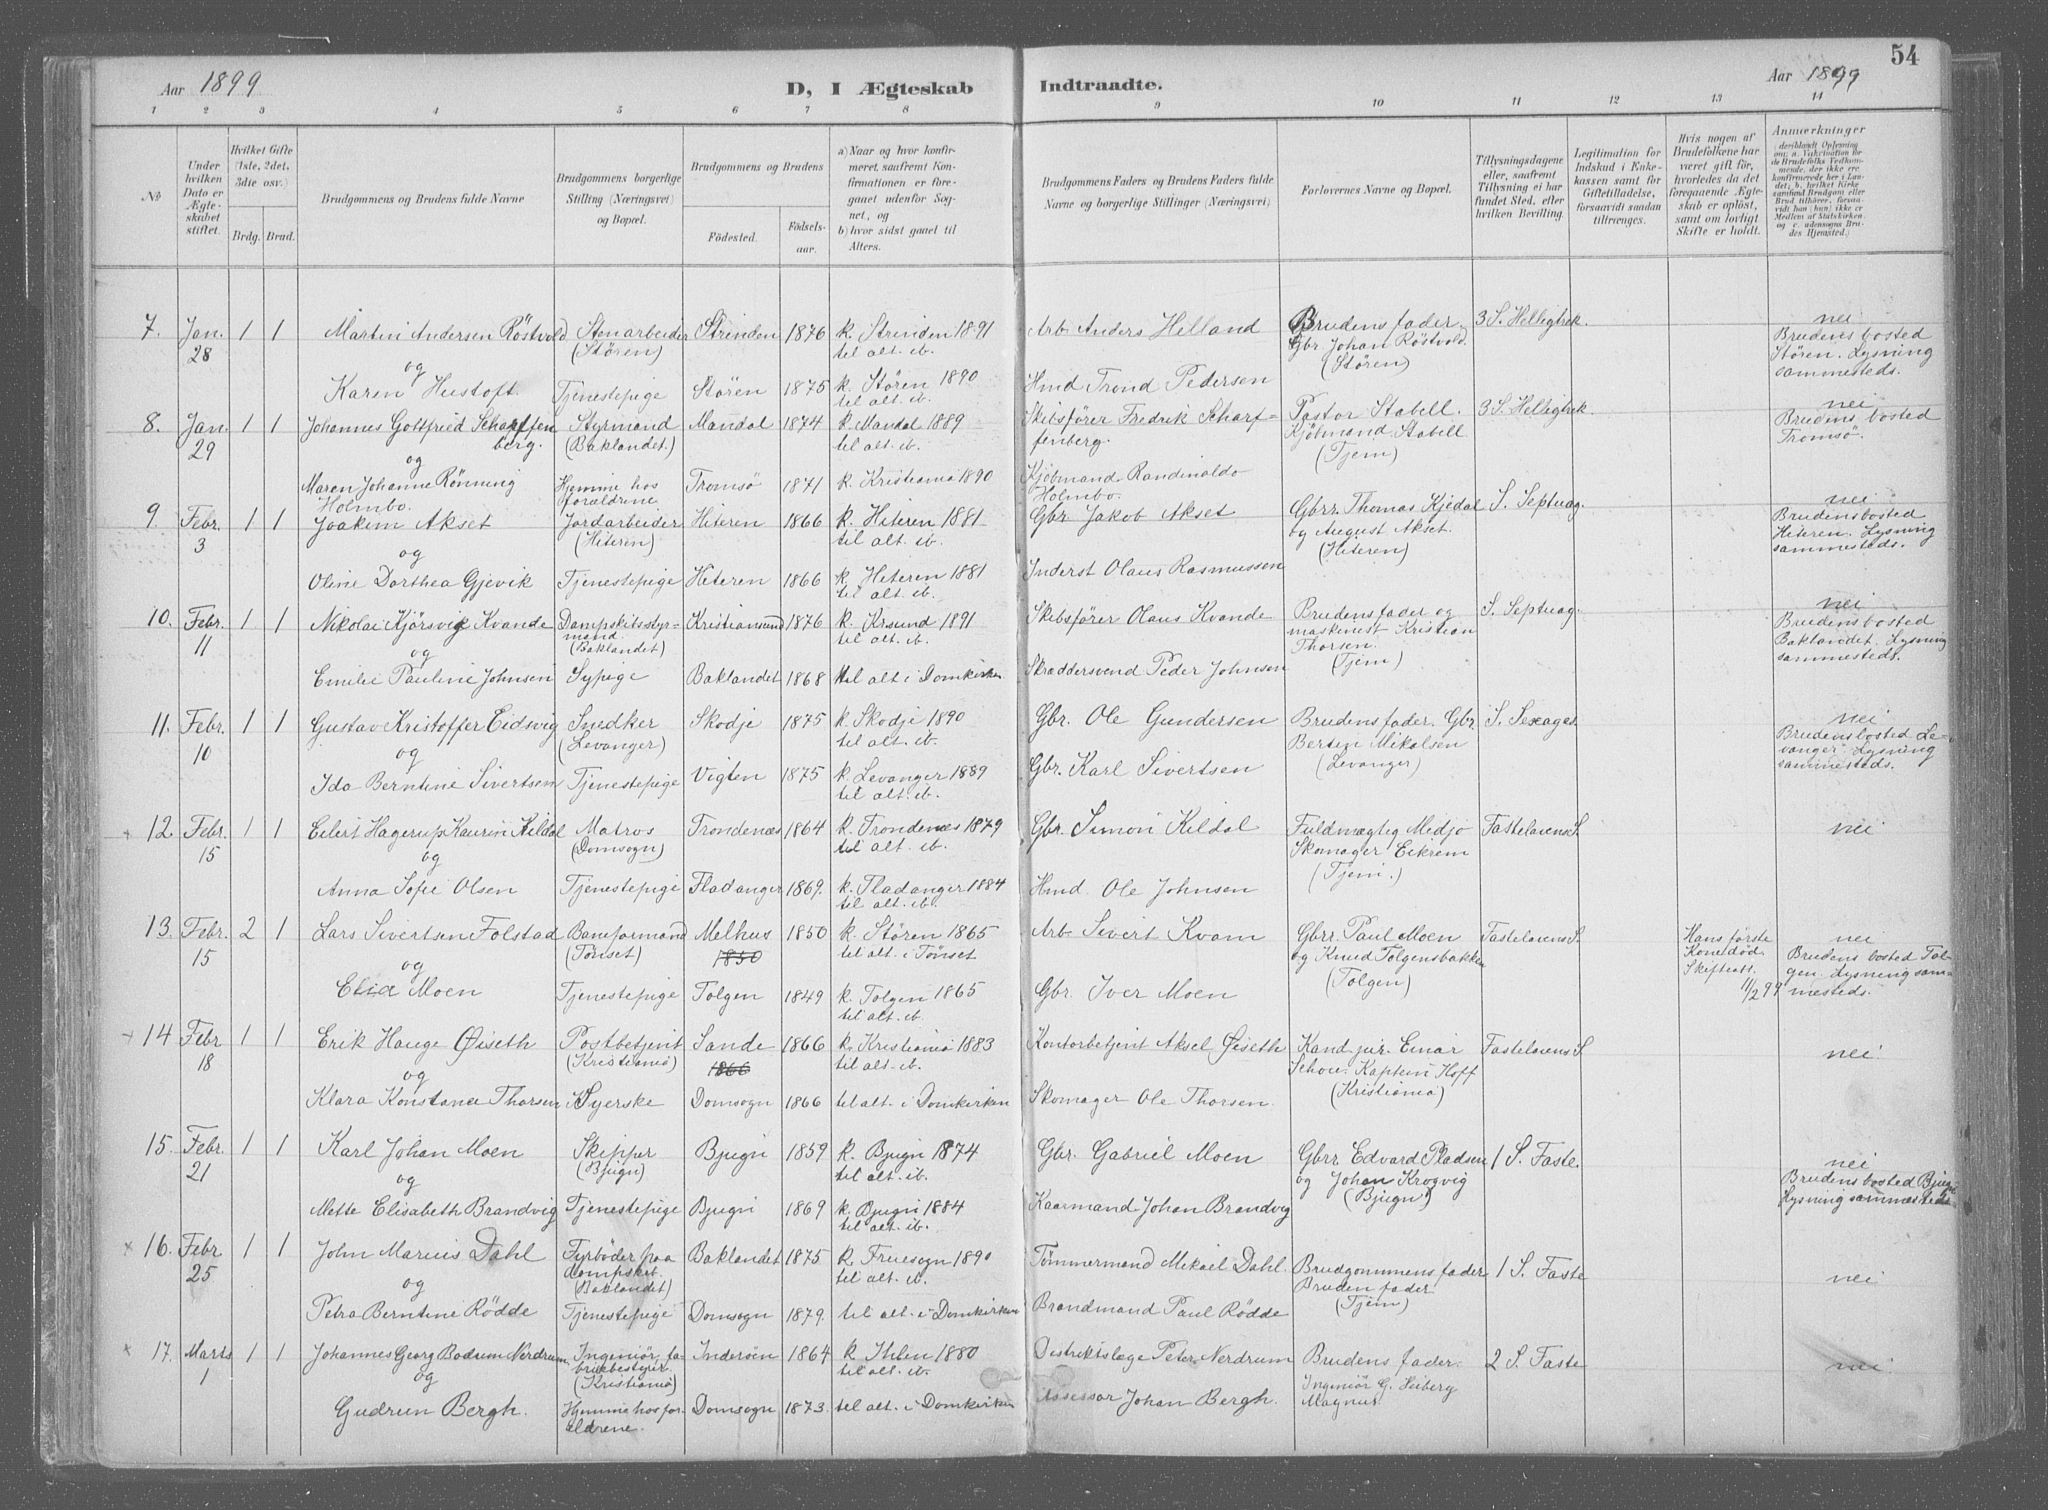 54
Aar 1899
D, I Ægteskab Indtraadte.
Aar 1899
1 2 3 4 5 6 7 8 9 10 11 12 13 14
No
Under hvilken Dato er Ægteskabet stiftet.
Hvilket Gifte (1ste, 2det, 3die osv.)
Brdg. Brud.
Brudgommens og Brudens fulde Navne
Brudgommens borgerlige Stilling (Næringsvei) og Bopæl.
Brudgommens og Brudens
Födested. Födselsaar.
a) Naar og hvor konfirmeret, saafremt Konfirmationen er foregaaet udenfor Sognet, og
b) hvor sidst gaaet til Alters.
Brudgommens Faders og Brudens Faders fulde Navne og borgerlige Stillinger (Næringsvei)
Forlovernes Navne og Bopæl.
Tillysningsdagene eller, saafremt Tillysning ei har fundet Sted, efter hvilken Bevilling.
Legitimation for Indskud i Enkekassen samt for Giftetilladelse, forsaavidt saadan tiltrænges.
Hvis nogen af Brudefolkene har været gift før, hvorledes da det foregaaende Ægteskab er oplöst, samt om lovligt Skifte er holdt.
Anmerkninger
7. Jan. 28 1 1 Martin Andersen Röstvold Stenarbeider (Stören) Strinden 1876 k. Strinden 1891 til alt. ib. Arb. Anders Helland Brudens fader, Gbr. Johan Röstvold. (Stören) 3 S. Helligtrek. nei Brudens bosted Stören. Lysning sammesteds.
og
Karen Hustoft. Tjenestepige Stören 1875 k. Stören 1890 til alt. ib. Hmd Trond Pedersen
8. Jan. 29 1 1 Johannes Gottfried Scharffenberg. Styrmand (Baklandet.) Mandal 1874 k. Mandal 1889 til alt. ib. Skibsfører Fredrik Scharffenberg. Pastor Stabell. Kjöbmand Stabell (Tjem) 3 S. Helligtrek nei Brudens bosted Tromsö.
og
Maren Johanne Rönning Holmbo. Hjemme hos forældrene Tromsö 1871 k. Kristiania 1890 Kjöbmand Randinaldo Holmbo.
9. Febr. 3 1 1 Joakim Akset Jordarbeider (Hiteren) Hiteren 1866 k. Hiteren 1881 til alt. ib. Gbr. Jakob Akset Gbrr. Thomas Kjedal og August Akset. (Hiteren) S. Septuag. nei Brudens bosted Hiteren. Lysning sammesteds.
og
Oline Dorthea Gjevik Tjenestepige Hiteren 1866 k. Hiteren 1881 til alt. ib. Inderst Olaus Rasmussen
10. Febr. 11 1 1 Nikolai Kjörsvig Kvande Dampskibsstyrmand. (Baklandet) Kristiansund 1876 k. Krsund 1891 til alt. ib. Skibsfører Olaus Kvande Brudens fader og maskinist Kristian Thorsen. (Tjem) S. Septuag. nei Brudens bosted Baklandet. Lysning sammesteds.
og
Emilie Pauline Johnsen Sypige Baklandet 1868 til alt i Domkirken Skræddersvend Peder Johnsen
11. Febr. 10 1 1 Gustav Kristoffer Eidsvig Snedker (Levanger) Skodje 1875 k. Skodje 1890 til alt. ib. Gbr. Ole Gundersen Brudens fader. Gbr. Berten Mikalsen (Levanger) S. Sexages. nei Brudens bosted Levanger. Lysning sammesteds.
og
Ida Berntine Sivertsen Tjenestepige Vigten 1875 k. Levanger 1889 til alt. ib. Gbr. Karl Sivertsen
12. Febr. 15 1 1 Eilert Hagerup Kaurin Kildal Matros (Domsogn) Trondenæs 1864 k. Trondenæs 1879 til alt. ib. Gbr. Simon Kildal Fuldmægtig Medjo Skomager Eikrem (Tjem.) Fastelavens S. nei
og
Anna Sofie Olsen Tjenestepige Fladanger 1869. k. Fladanger 1884 til alt. ib. Hmd. Ole Johnsen
13. Febr. 15 2 1 Lars Sivertsen Folstad Baneformand (Tönset) Melhus 1850 1850 k. Stören 1865 til alt. i Tönset Arb. Sivert Kvam Gbrr. Paul Moen og Knud Tolgensbakken (Tolgen) Fastelavens S. Hans første Kone död. Skifteatt. 11/2 99 nei Brudens bosted Tolgen. Lysning sammesteds.
og
Elia Moen Tjenestepige Tolgen 1849 k. Tolgen 1865 til alt. ib. Gbr. Iver Moen
14 Febr 18 1 1 Erik Hauge Øiseth Postbetjent (Kristiania) Sande 1866 1866 k. Kristiania 1883 til alt. ib. Kontorbetjent Aksel Øiseth Kand. jur. Einar Schou. Kaptein Hoff (Kristiania) Fastelavens S nei.
og
Klara Konstance Thorsen Syerske Domsogn 1866 til alt. i Domkirken Skomager Ole Thorsen.
15. Febr. 21 1 1 Karl Johan Moen Skipper (Bjugn) Bjugn 1859 k. Bjugn 1874 til alt. ib. Gbr. Gabriel Moen Gbrr. Edvard Pladsen og Johan Krogvig (Bjugn) 1 S. Faste. nei Brudens bosted Bjugn Lysning sammesteds
og
Mette Elisabeth Brandvig Tjenestepige Bjugn 1869 k. Bjugn 1884 til alt. ib. Kaarmand Johan Brandvig
16. Febr 25 1 1 John Marius Dahl Fyrböder paa dampskib. (Baklandet) Baklandet 1875 k. Fruesogn 1890 til alt. ib. Tømmermand Mikael Dahl. Brudgommens fader Bruden fader (Tjem) 1 S. Faste nei
og
Petra Berntine Rödde Tjenestepige Domsogn 1879. til alt. i Domkirken Brandmand Paul Rödde
17. Marts 1 1 1 Johannes Georg Bodum Nerdrum. Ingeniör, fabrikbestyrer (Kristiania) Inderöen 1864 k. Ihlen 1880 til alt. ib. Distriktslæge Peter Nerdrum Brudens fader. Ingeniör G. Heiberg Magnus. 2 S. Faste nei
og
Gudrun Bergh. Hjemme hos forældrene. Domsogn 1873. til alt. i Domkirken Assessor Johan Bergh.